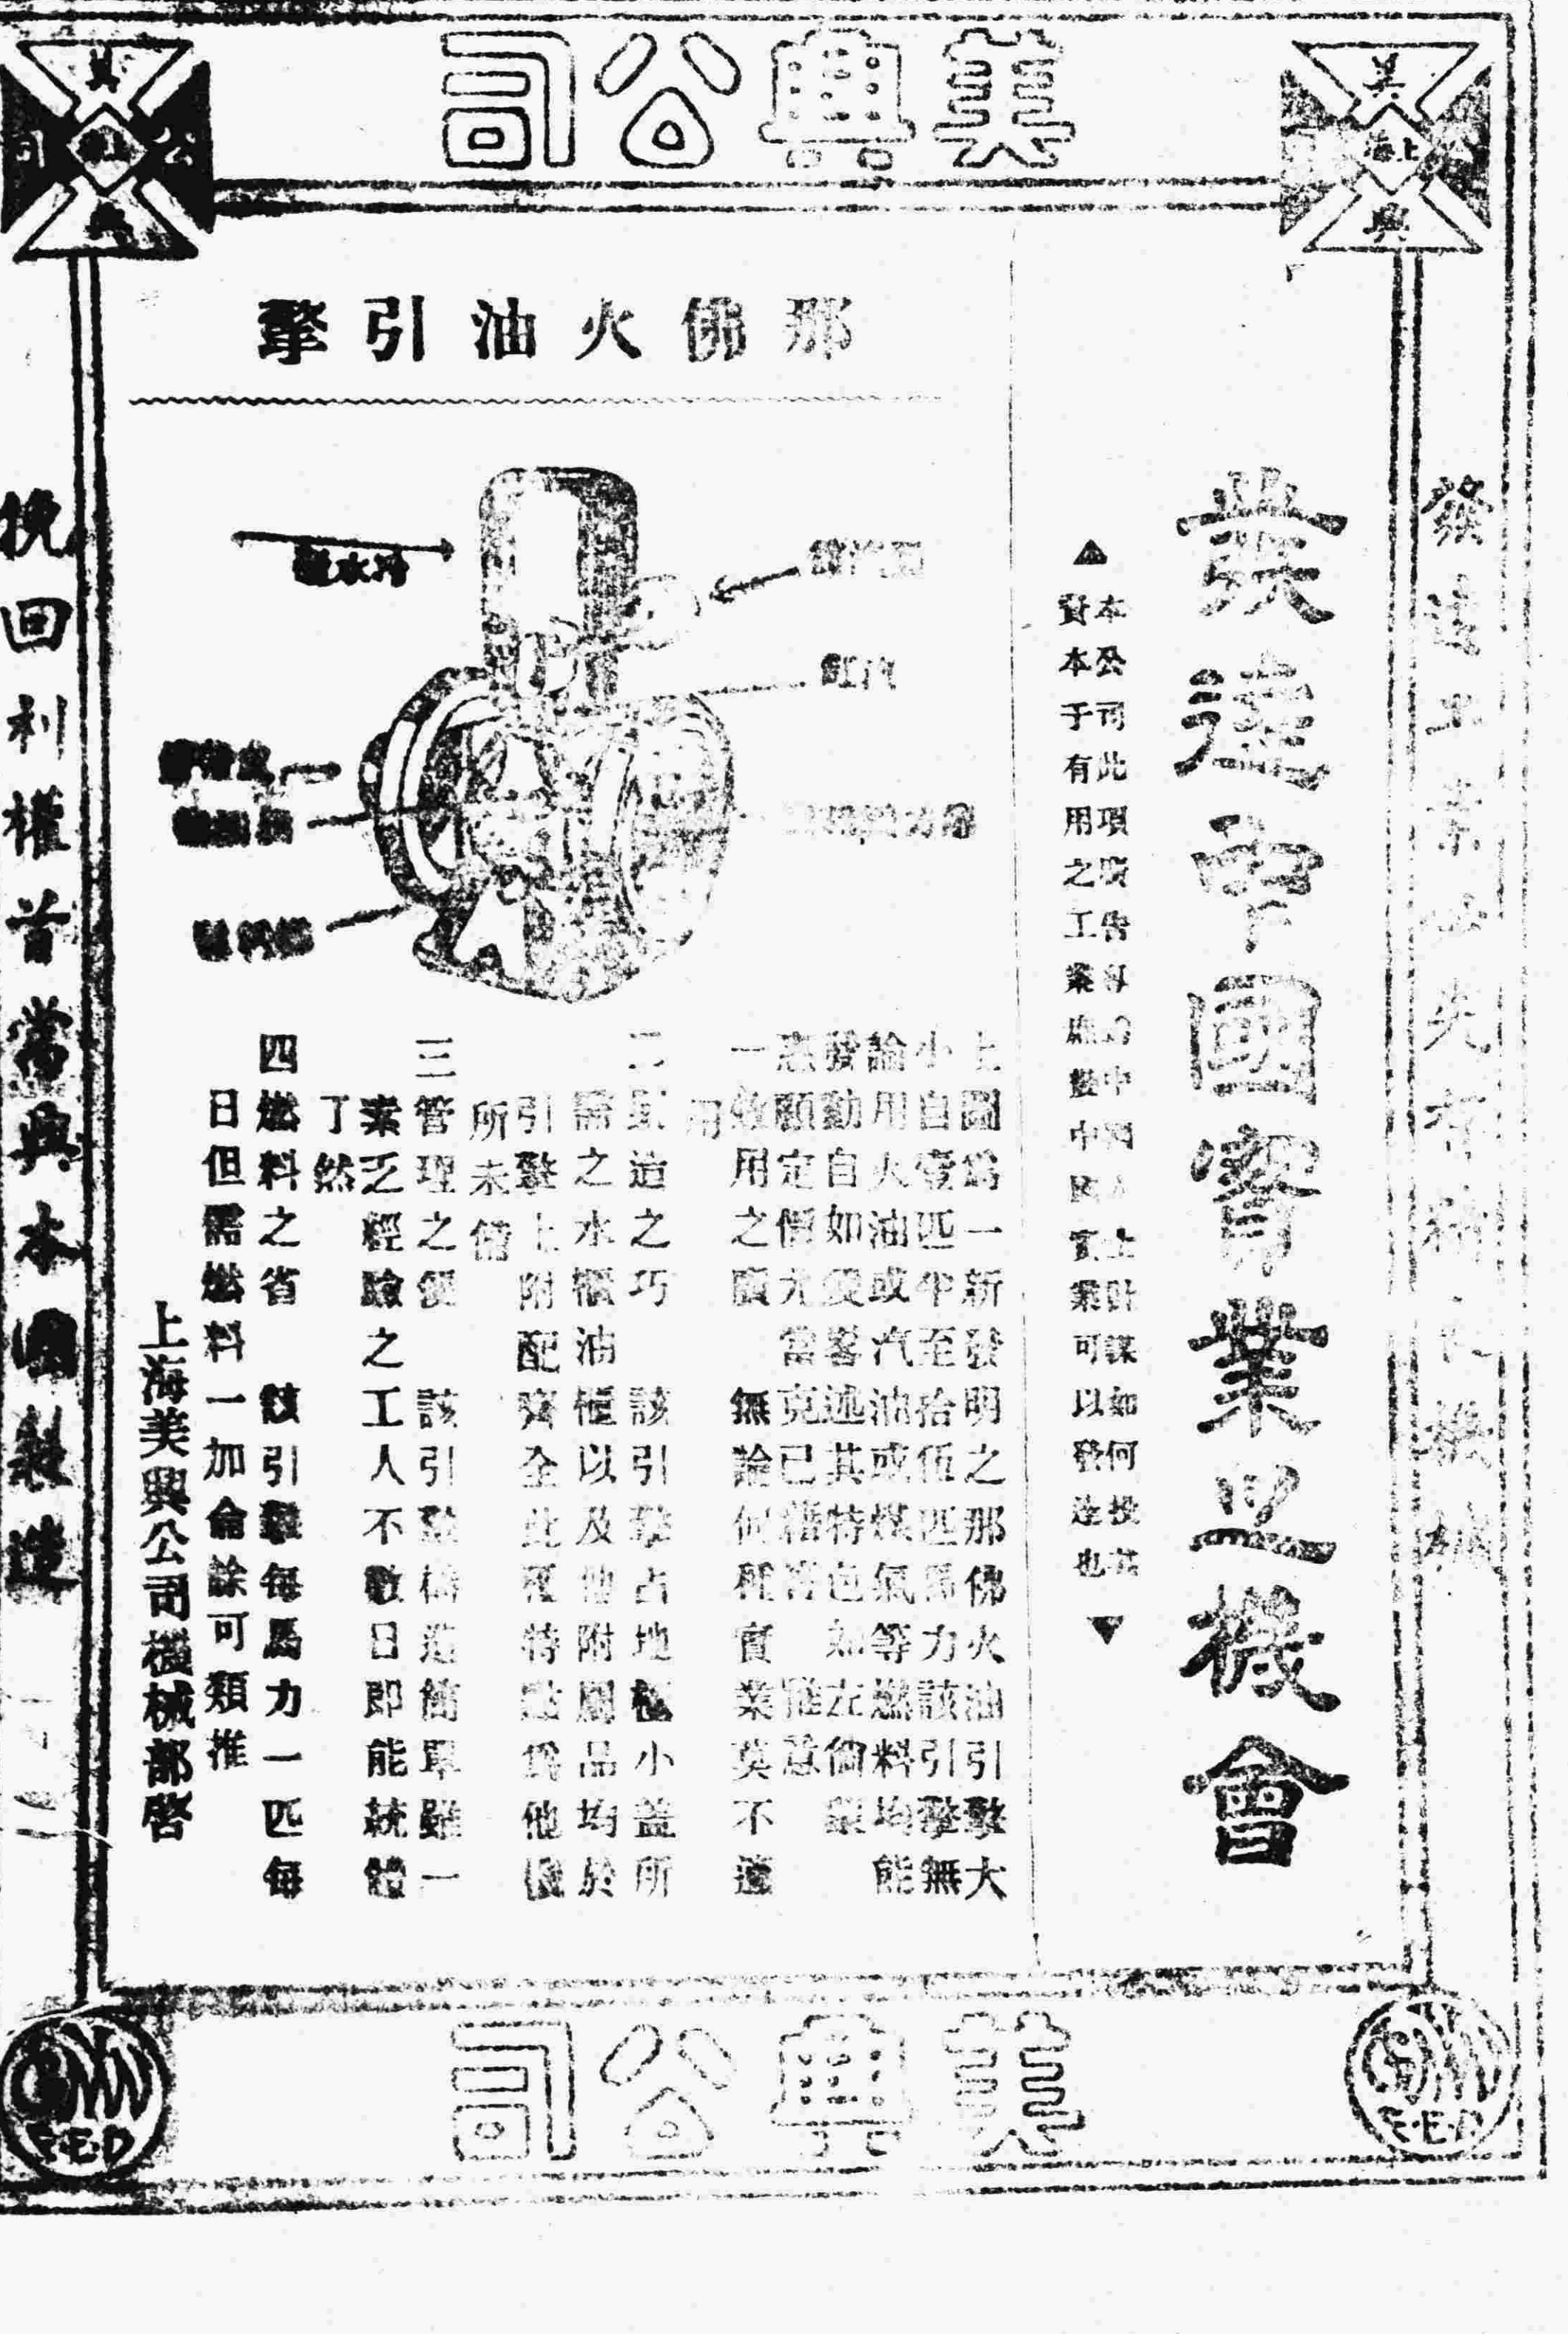 美興公司
美
興
上海
公司
發達工業必先有精良機械
發達中國實業之機會
本公司此項廣告專為中國人士計謀如何投其
資本于有用之工業庶幾中國實業可以發達也
那佛火油引擎
冷水
汽缸
上圖為一新發明之那佛火油引擎大
小自壹匹半至拾伍匹馬力該引擎無
論用火油或汽油或煤氣等燃料均能
發動自如爰畧述其特色如左倘蒙
惠顧定價尤當克己藉答雅意
一效用之廣 無論何種實業莫不適
用
二製造之巧 該引擎占地極小蓋所
需之水櫃油櫃以及他附屬品均於
引擎上附配齊全此種特點為他機
所未備
三管理之便 該引擎構造簡單雖一
素乏經驗之工人不數日即能統體
了然
四燃料之省 該引擎每馬力一匹每
日但需燃料一加侖餘可類推
上海美興公司機械部啓
挽回利權首當興本國製造
美興公司
F.E.D
F.E.D